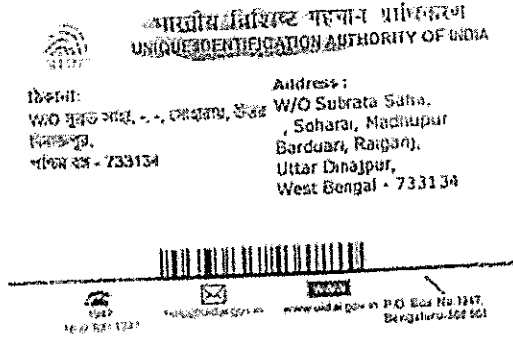 भारतीय विशिष्ट पहचान प्राधिकरण
UNIQUE IDENTIFICATION AUTHORITY OF INDIA
ঠিকানা:
W/O সুব্রত সাহা, -, -, সোহারাই, উত্তর
দিনাজপুর,
পশ্চিম বঙ্গ - 733134
Address :
W/O Subrata Saha,
, Soharai, Madhupur
Barduari, Raiganj,
Uttar Dinajpur,
West Bengal - 733134
1947
WWW
www.uidai.gov.in
P.O. Box No.1947,
Bengaluru-560 001